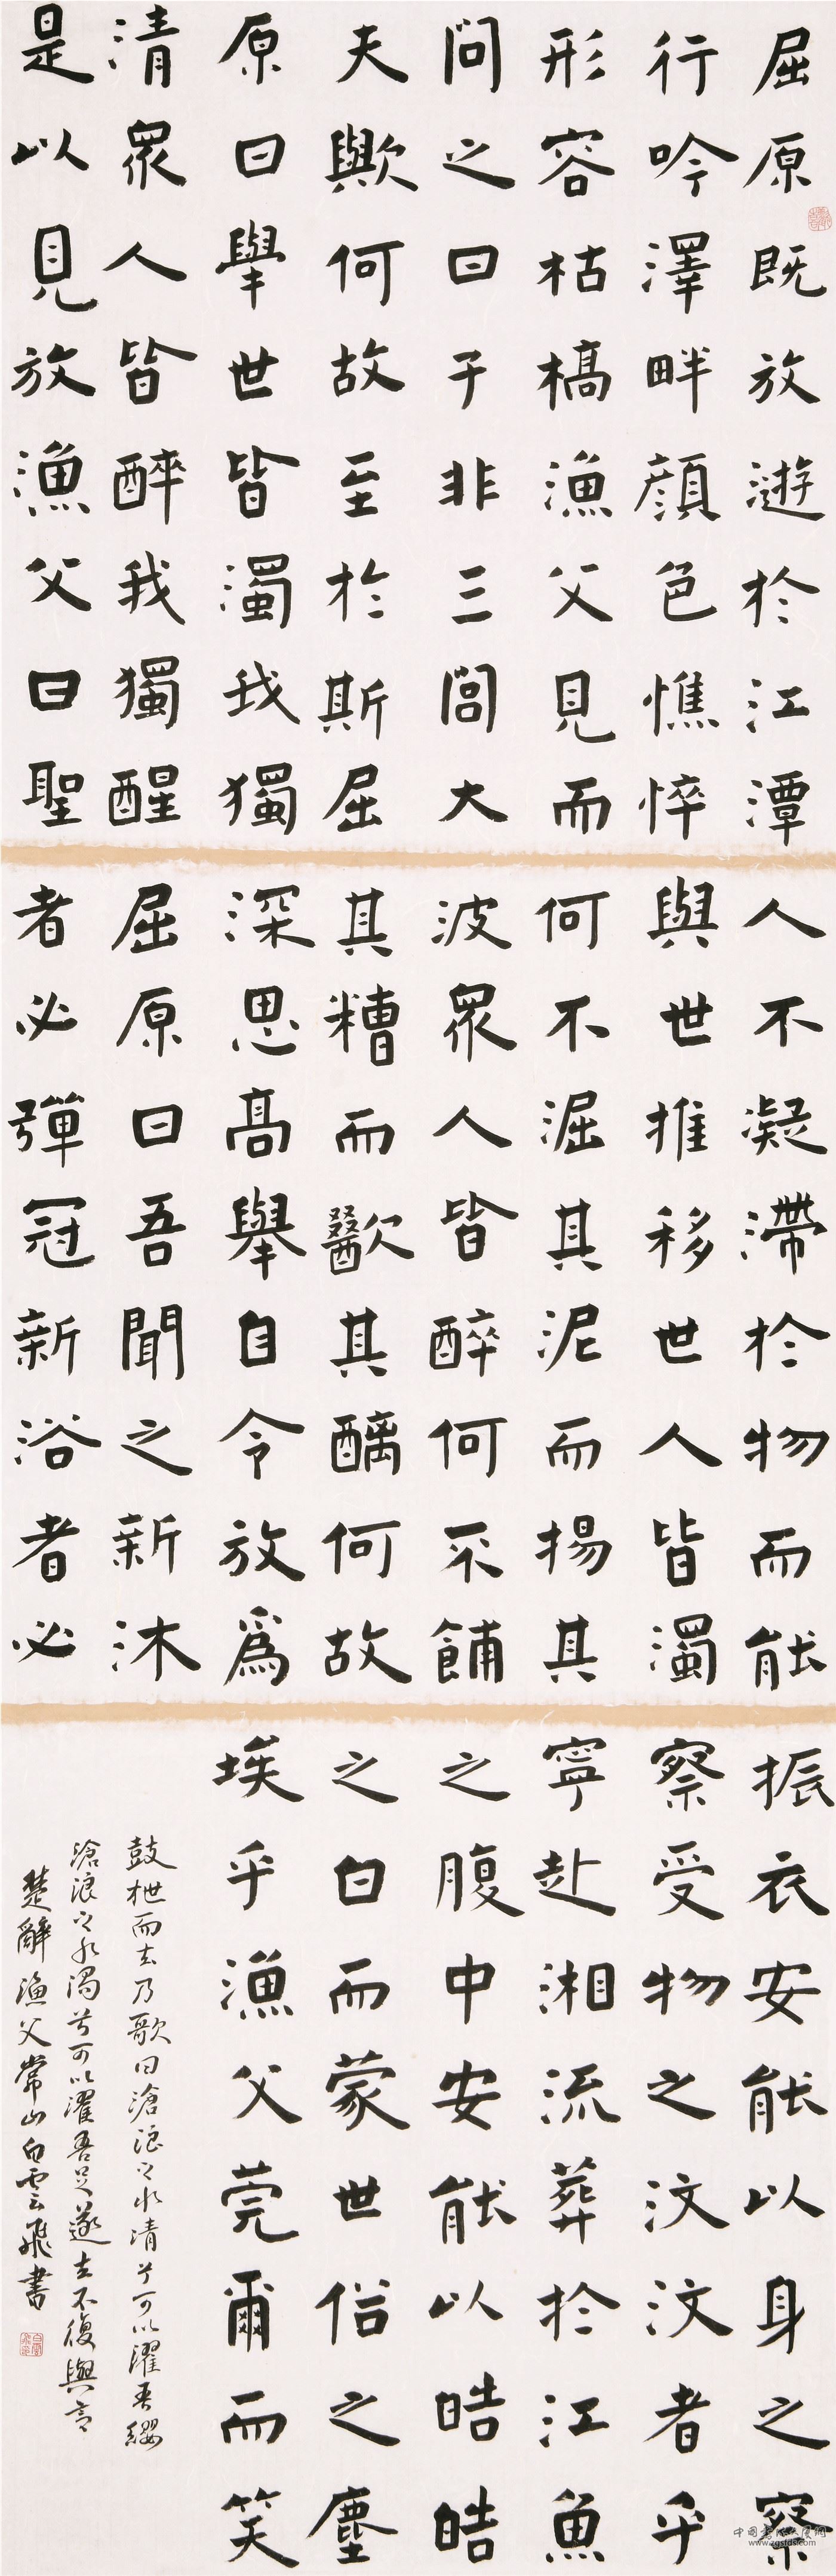 屈原既放遊於江潭
行吟澤畔顔色憔悴
形容枯槁漁父見而
問之曰子非三閭大
夫歟何故至於斯屈
原曰舉世皆濁我獨
清眾人皆醉我獨醒
是以見放漁父曰聖
人不凝滯於物而能
與世推移世人皆濁
何不淈其泥而揚其
波眾人皆醉何不餔
其糟而歠其醨何故
深思高舉自令放爲
屈原曰吾聞之新沐
者必彈冠新浴者必
振衣安能以身之察
察受物之汶汶者乎
寧赴湘流葬於江魚
之腹中安能以皓皓
之白而蒙世俗之塵
埃乎漁父莞爾而笑
鼓枻而去乃歌曰滄浪之水清兮可以濯吾纓
滄浪之水濁兮可以濯吾足遂去不復與言
楚辭漁父常山白雲飛書